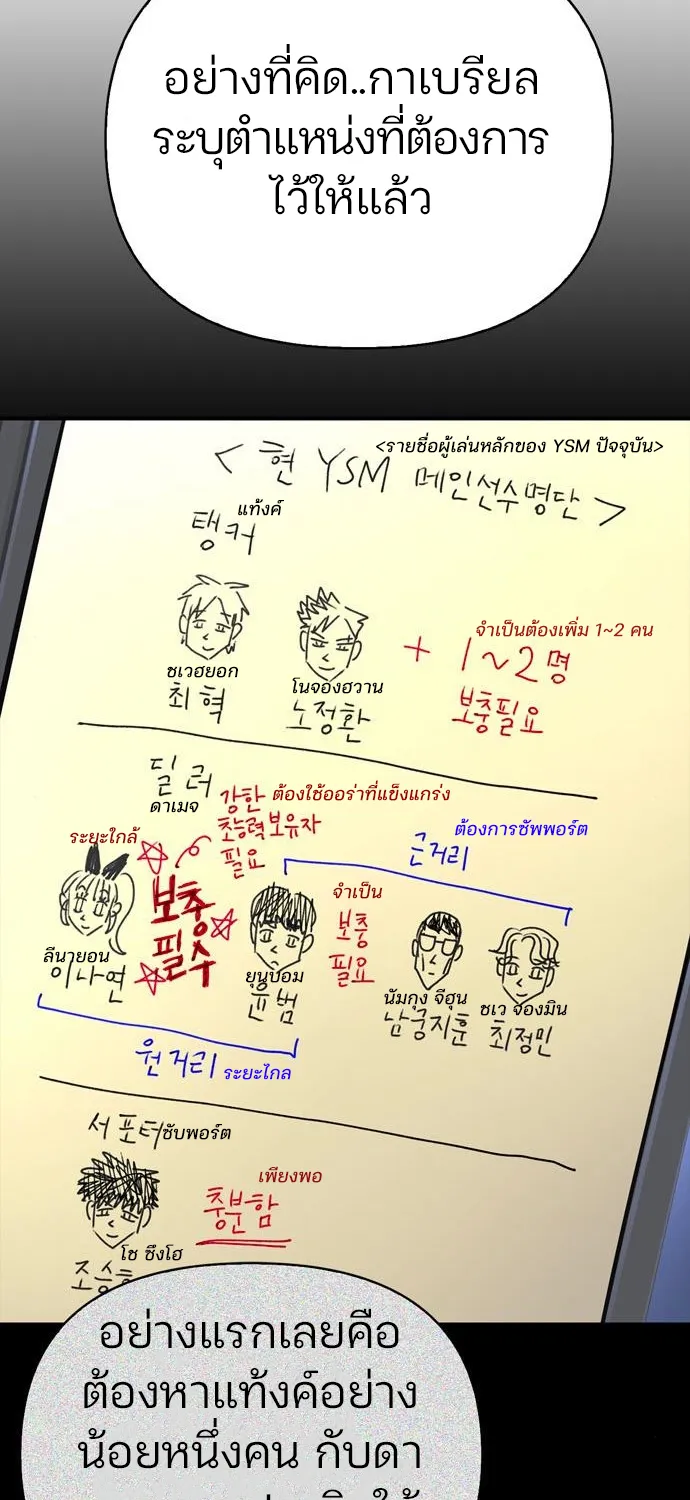 อย่างที่คิด..กาเบรียล
ระบุตำแหน่งที่ต้องการ
ไว้ให้แล้ว
<รายชื่อผู้เล่นหลักของ YSM ปัจจุบัน>
<현 YSM 메인선수명단>
แท้งค์
탱커
ชเวฮยอก
최혁
โนจองฮวาน
노정환
จำเป็นต้องเพิ่ม 1~2 คน
+ 1~2명
보충필요
딜러
ดาเมจ
강한
초능력보유자
필요
ต้องใช้ออร่าที่แข็งแกร่ง
ต้องการซัพพอร์ต
근거리
ระยะใกล้
보충
필수
จำเป็น
보충
필요
ลีนายอน
이나연
ยุนบอม
윤범
นัมกุง จีฮุน
남궁지훈
ชเว จองมิน
최정민
원거리
ระยะไกล
서포터
ซับพอร์ต
เพียงพอ
충분함
โช ซึงโฮ
조승
อย่างแรกเลยคือ
ต้องหาแท้งค์อย่าง
น้อยหนึ่งคน กับดา